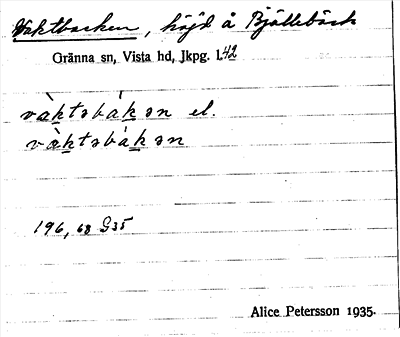 Vaktbacken, höjd å Bjällebäck
Gränna sn, Vista hd, Jkpg. l. 42
vàk̲təbák̲ən el.
vàk̲təbàk̲ən
196, 68 G35
Alice Petersson 1935.